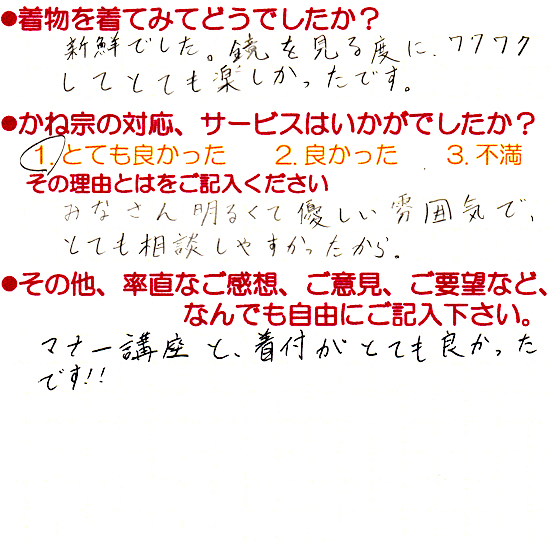 ●着物を着てみてどうでしたか？
新鮮でした。鏡を見る度に、ワクワク
してとても楽しかったです。
●かね宗の対応、サービスはいかがでしたか？
1.とても良かった 2.良かった 3.不満
その理由とはをご記入ください
みなさん明るくて優しい雰囲気で、
とても相談しやすかったから。
●その他、率直なご感想、ご意見、ご要望など、
なんでも自由にご記入下さい。
マナー講座と、着付がとても良かった
です!!